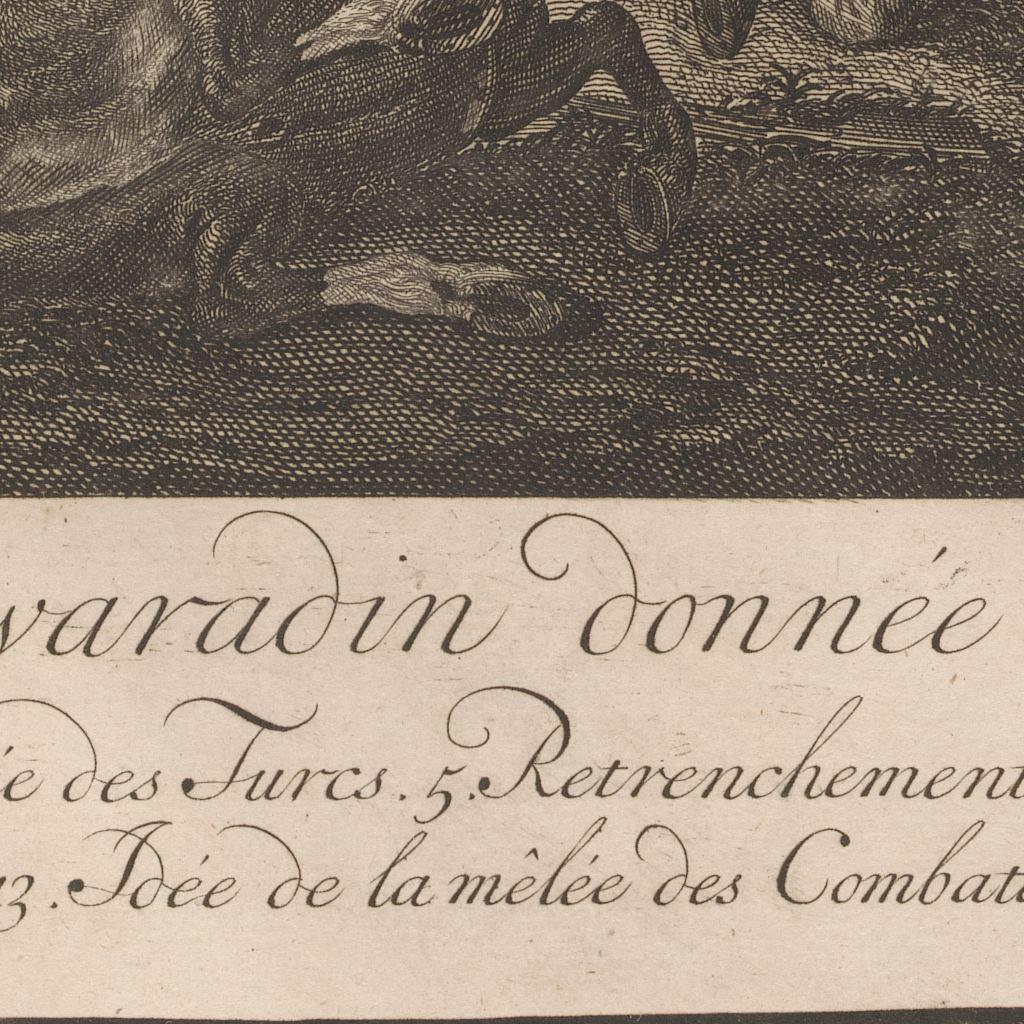 waradin donnée
ée des Turcs. 5. Retrenchement
13. Idée de la mêlée des Combata